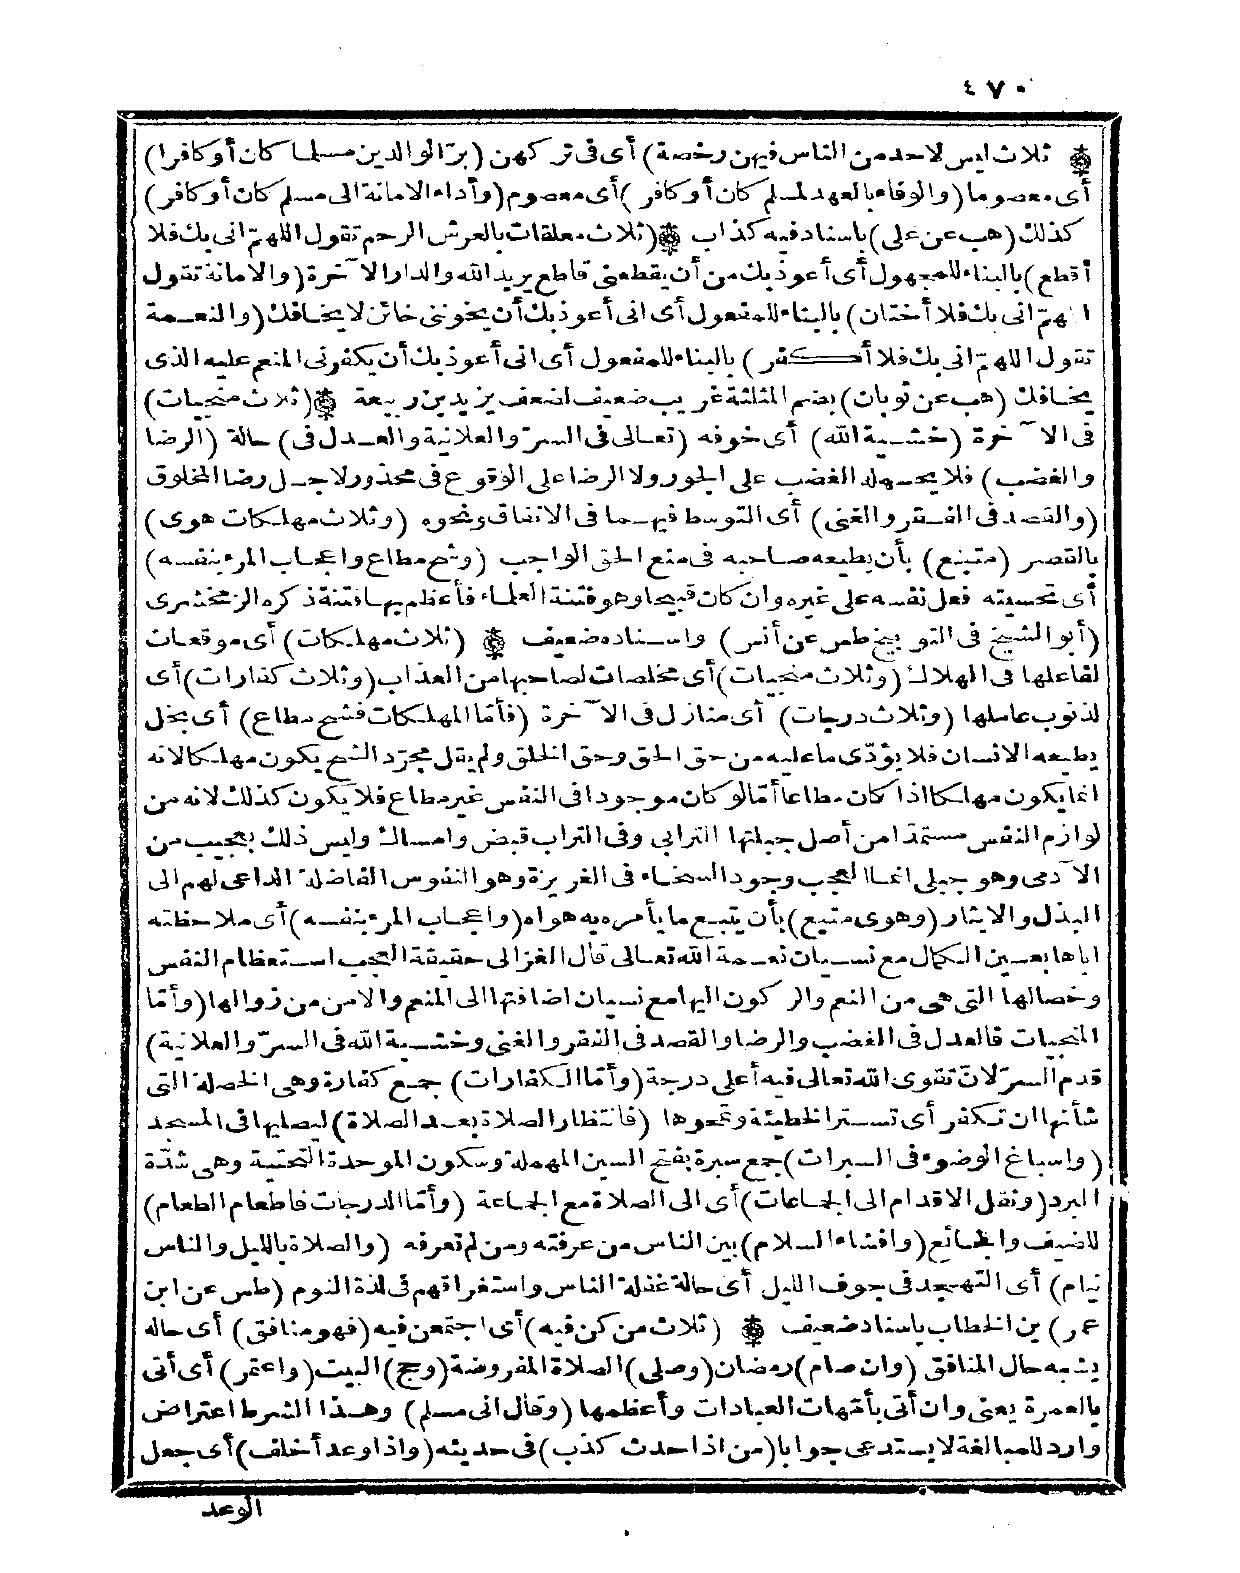 ٤٧٠
ثلاث ليس لاحد من الناس فيهن رخصة) أى فى تركهن (برّ الوالدين مسلما كان أو كافرا)
أى معصوما (والوفاء بالعهد لمسلم كان أو كافر) أى معصوم (وأداء الامانة الى مسلم كان أو كافر)
كذلك (هب عن على) باسناد فيه كذاب (ثلاث معلقات بالعرش الرحم تقول اللهمّ انى بك فلا
أقطع) بالبناء للمجهول أى أعوذ بك من أن يقطعنى قاطع يريد الله والدار الآخرة (والامانة تقول
اللهمّ انى بك فلا أختان) بالبناء للمفعول أى انى أعوذ بك أن يخوننى خائن لا يخافك (والنعمة
تقول اللهمّ انى بك فلا أكفر) بالبناء للمفعول أى انى أعوذ بك أن يكفرنى المنعم عليه الذى
يخافك (هب عن ثوبان) بضم المثلثة غريب ضعيف لضعف يزيد بن ربيعة (ثلاث منجيات)
فى الآخرة (خشية الله) أى خوفه (تعالى فى السرّ والعلانية والعدل فى) حالة (الرضا
والغضب) فلا يحمله الغضب على الجور ولا الرضا على الوقوع فى محذور لاجل رضا المخلوق
(والقصد فى الفقر والغنى) أى التوسط فيهما فى الانفاق ونحوه (وثلاث مهلكات هوى)
بالقصر (متبع) بأن يطيعه صاحبه فى منع الحق الواجب (وشح مطاع واعجاب المرء بنفسه)
أى تحسينه فعل نفسه على غيره وان كان قبيحا وهو فتنة العلماء فأعظم بها فتنة ذكره الزمخشرى
(أبو الشيخ فى التوبيخ طس عن أنس) واسناده ضعيف (ثلاث مهلكات) أى موقعات
لفاعلها فى الهلاك (وثلاث منجيات) أى مخلصات لصاحبها من العذاب (وثلاث كفارات) أى
لذنوب عاملها (وثلاث درجات) أى منازل فى الآخرة (فأمّا المهلكات فشح مطاع) أى بخل
يطيعه الانسان فلا يؤدّى ما عليه من حق الحق وحق الخلق ولم يقل مجرّد الشح يكون مهلكا لانه
انما يكون مهلكا اذا كان مطاعا أمّا لو كان موجودا فى النفس غير مطاع فلا يكون كذلك لانه من
لوازم النفس مستمدّا من أصل جبلتها الترابى وفى التراب قبض وامساك وليس ذلك بعجيب من
الآدمى وهو جبلى انما العجب وجود السخاء فى الغريزة وهو النفوس الفاضلة الداعى لهم الى
البذل والايثار (وهوى متبع) بأن يتبع ما يأمره به هواه (واعجاب المرء بنفسه) أى ملاحظته
اياها بعين الكمال مع نسيان نعمة الله تعالى قال الغزالى حقيقة العجب استعظام النفس
وخصالها التى هى من النعم والركون اليها مع نسيان اضافتها الى المنعم والامن من زوالها (وأمّا
المنجيات فالعدل فى الغضب والرضا والقصد فى الفقر والغنى وخشية الله فى السرّ والعلانية)
قدم السرّ لانّ تقوى الله تعالى فيه أعلى درجة (وأمّا الكفارات) جمع كفارة وهى الخصلة التى
شأنها ان تكفر أى تستر الخطيئة وتمحوها (فانتظار الصلاة بعد الصلاة) ليصليها فى المسجد
(واسباغ الوضوء فى السبرات) جمع سبرة بفتح السين المهملة وسكون الموحدة التحتية وهى شدّة
البرد (ونقل الاقدام الى الجماعات) أى الى الصلاة مع الجماعة (وأمّا الدرجات فاطعام الطعام)
للضيف والجائع (وافشاء السلام) بين الناس من عرفته ومن لم تعرفه (والصلاة بالليل والناس
نيام) أى التهجد فى جوف الليل أى حالة غفلة الناس واستغراقهم فى لذة النوم (طس عن ابن
عمر) بن الخطاب باسناد ضعيف (ثلاث من كن فيه) أى اجتمعن فيه (فهو منافق) أى حاله
يشبه حال المنافق (وان صام) رمضان (وصلى) الصلاة المفروضة (وحج) البيت (واعتمر) أى أتى
بالعمرة يعنى وان أتى بأمّهات العبادات وأعظمها (وقال انى مسلم) وهذا الشرط اعتراض
وارد للمبالغة لا يستدعى جوابا (من اذا حدث كذب) فى حديثه (واذا وعد أخلف) أى جعل
الوعد